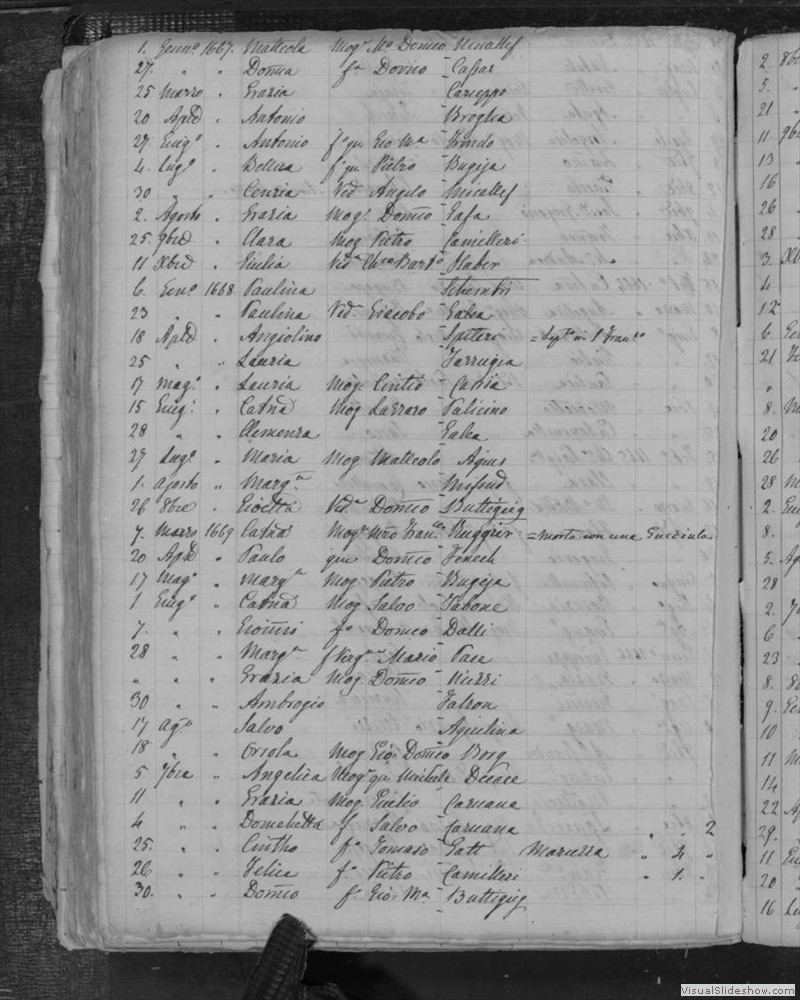 1. Genn.o 1667. Matteola Mog.r M.o Domco Micallef
27. " " Doma f.a Domco - Cassar
25 Marzo " Grazia Caruppo
20 Aple " Antonio Broglia
27. Giug.o " Antonio f.o qu Gio M.a - Frendo
4. Lug.o " Bellina f.a qu Pietro - Bugeja
30 " " Cenzia Ved Angelo - Micallef
2. Agosto " Grazia Mog.r Domco - Safa
25. 9bre " Clara Mog Pietro - Camilleri
11 Xbre " Giulia Ved.a Bart.o - Haber
6. Gen.o 1668. Paulina - Schembri
23 " " Paulina Ved.a Giacobo - Galea
18 Aple " Angiolino - Spiteri = Sep.to in S Fran.co
25 " " Lauria - Farrugia
17 Mag.o " Lauria Mog.r Cintio - Cassia
15 Giug.o " Catna Mog Lazzaro - Pulicino
28 " " Clemenza - Galea
27 Lug.o " Maria Mog Matteolo - Agius
1. Agosto " Marg.ta - Mifsud
26 8bre " Gioetta Ved.a Domco - Buttigieg
7. Marzo 1669 Catna Mog.r Mro Fran.co - Ruggier = morta con una
20 Aple " Paulo qu Domco - Fenech
17 Mag.o " Marg.ta Mog Pietro - Bugeja
1 Giug.o " Catna Mog Salvo - Tabone
7. " " f.o Domco - Dalli
28 " " Marg.ta f Verg.ne Mario - Pace
" " " Grazia Mog Domco - Muzzi
30 " " Ambrogio - Falzon
17 Ag.o Salvo " - Agiulina
18 " " Orsola Mog Gio Domco Borg
5 7bre " Angelica Mog.r qu Michele Debace
11 " " Grazia Mog Giulio - Caruana
4 " " Domchetta f Salvo - Caruana " " 2
25. " " Cintho f.o Tomaso - Gatt Maruzza " 4 "
26 " " Felice f.o Pietro - Camilleri " 1. "
30. " " Domco f. Gio M.a - Buttigieg
VisualSlideshow.com